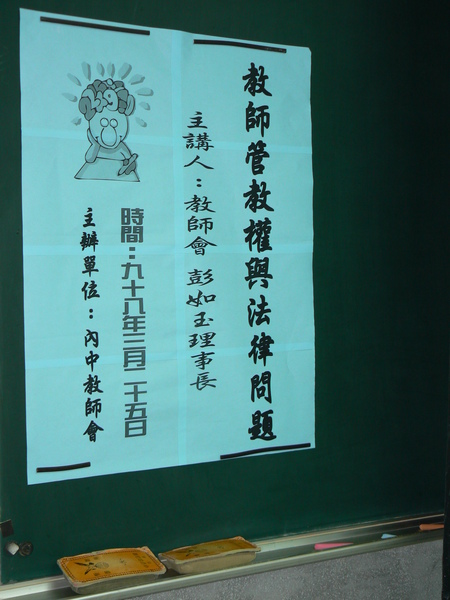 教師管教權與法律問題
主講人：教師會 彭如玉理事長
時間：九十八年三月二十五日
主辦單位：內中教師會